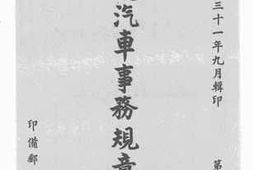 三十一年九月輯印
第
汽車事務規章
印備郵